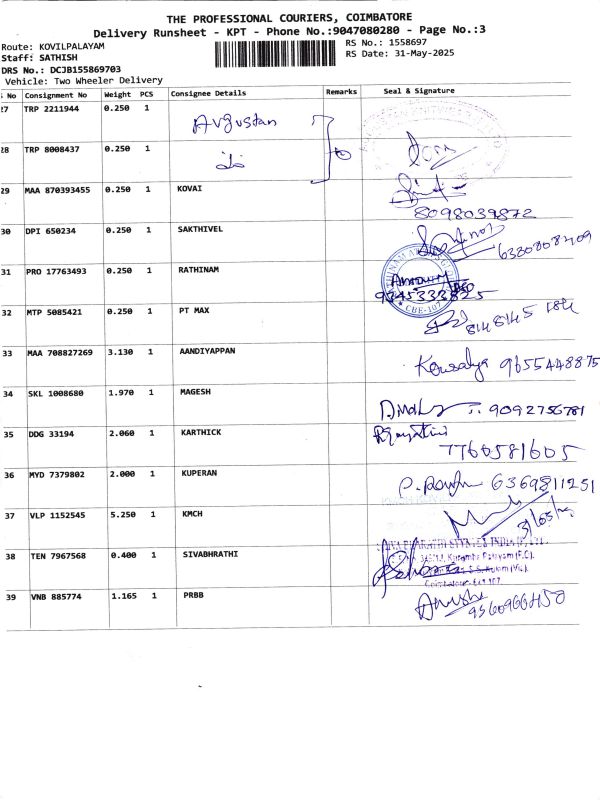 THE PROFESSIONAL COURIERS, COIMBATORE
Delivery Runsheet - KPT - Phone No.:9047080280 - Page No.:3
Route: KOVILPALAYAM
RS No.: 1558697
Staff: SATHISH
RS Date: 31-May-2025
DRS No.: DCJB155869703
Vehicle: Two Wheeler Delivery
No Consignment No Weight PCS Consignee Details Remarks Seal & Signature
27 TRP 2211944 0.250 1 Avgustan
28 TRP 8008437 0.250 1
29 MAA 870393455 0.250 1 KOVAI
8098039872
30 DPI 650234 0.250 1 SAKTHIVEL
31 PRO 17763493 0.250 1 RATHINAM
9345333825
32 MTP 5085421 0.250 1 PT MAX
33 MAA 708827269 3.130 1 AANDIYAPPAN Kousalya 9655448875
34 SKL 1008680 1.970 1 MAGESH 9092756781
35 DDG 33194 2.060 1 KARTHICK
7760581605
36 MYD 7379802 2.000 1 KUPERAN 6369811251
37 VLP 1152545 5.250 1 KMCH
38 TEN 7967568 0.400 1 SIVABHRATHI
39 VNB 885774 1.165 1 PRBB